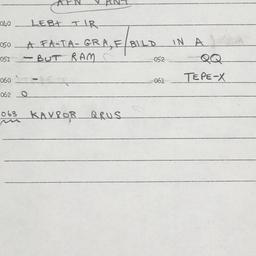 040 LEB+ TIR
050 A FA-TA-GRA,F/BILD IN A
051 - BUT RAM 052 QQ
060 - 061 TEPE-X
062 O
063 KAVPOR QRUS